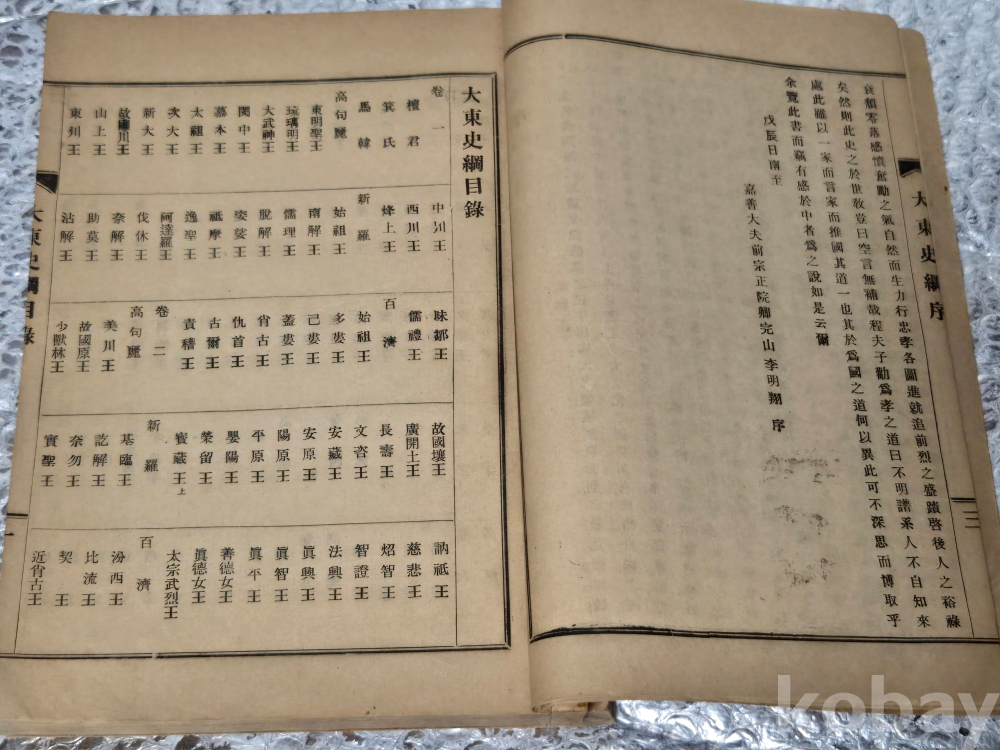 大東史綱序
三
哀頹零落感憤奮勵之氣自然而生力行忠孝各圖進就追前烈之盛蹟啓後人之裕祿
矣然則此史之於世敎豈曰空言無補哉程夫子勸爲孝之道曰不明譜系人不自知來
處此雖以一家而言家而推國其道一也其於爲國之道何以異此可不深思而博取乎
余覽此書而竊有感於中者爲之說如是云爾
戊辰日南至
嘉善大夫前宗正院卿完山李明翔 序
大東史綱目錄
卷一
檀君
箕氏
馬韓
高句麗
東明聖王
琉璃明王
大武神王
閔中王
慕本王
太祖王
次大王
新大王
故國川王
山上王
東川王
中川王
西川王
烽上王
新羅
始祖王
南解王
儒理王
脫解王
婆娑王
祗摩王
逸聖王
阿達羅王
伐休王
奈解王
助莫王
沾解王
味鄒王
儒禮王
百濟
始祖王
多婁王
己婁王
蓋婁王
肖古王
仇首王
古爾王
責稽王
卷二
高句麗
美川王
故國原王
少獸林王
故國壤王
廣開土王
長壽王
文咨王
安藏王
安原王
陽原王
平原王
嬰陽王
榮留王
寶藏王上
新羅
基臨王
訖解王
奈勿王
實聖王
訥祇王
慈悲王
炤智王
智證王
法興王
眞興王
眞智王
眞平王
善德女王
眞德女王
太宗武烈王
百濟
汾西王
比流王
契王
近肖古王
大東史綱目錄
一
kobay